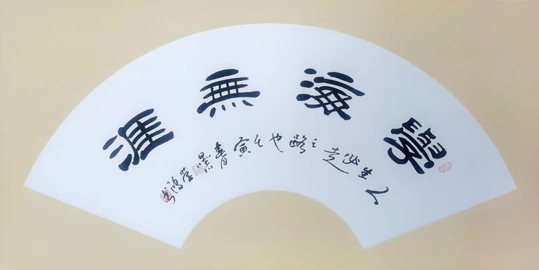 學海無涯
人生必走之路也壬寅春